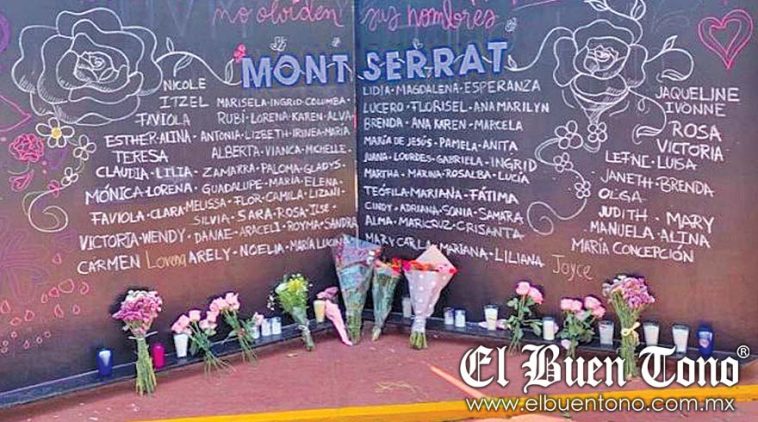 no olviden sus nombres
MONTSERRAT
NICOLE
ITZEL MARISELA-INGRID-COLUMBA
FAVIOLA RUBÍ-LORENA-KAREN-ALVA
ESTHER-ALINA-ANTONIA-LIZBETH-IRINEA-MARÍA
TERESA ALBERTA-VIANCA-MICHELLE
CLAUDIA-LILIA-ZAMARRA-PALOMA-GLADYS
MÓNICA-LORENA-GUADALUPE-MARÍA-ELENA
FAVIOLA-CLARA-MELISSA-FLOR-CAMILA-LIZANI
SILVIA-SARA-ROSA-ILSE
VICTORIA-WENDY-DANAE-ARACELI-ROYMA-SANDRA
CARMEN Lorena ARELY-NOELIA-MARÍA LUCINA
LIDIA-MAGDALENA-ESPERANZA
LUCERO-FLORISEL-ANA MARILYN
BRENDA-ANA KAREN-MARCELA
MARÍA DE JESÚS-PAMELA-ANITA
JUANA-LOURDES-GABRIELA-INGRID
MARTHA-MARINA-ROSALBA-LUCÍA
TEÓFILA-MARIANA-FÁTIMA
CINDY-ADRIANA-SONIA-SAMARA
ALMA-MARICRUZ-CRISANTA
MARY CARLA MARIANA-LILIANA Joyce
JAQUELINE
IVONNE
ROSA
VICTORIA
LUISA
JANETH-BRENDA
OLGA
JUDITH-MARY
MANUELA-ALINA
MARÍA CONCEPCIÓN
El Buen Tono®
www.elbuentono.com.mx